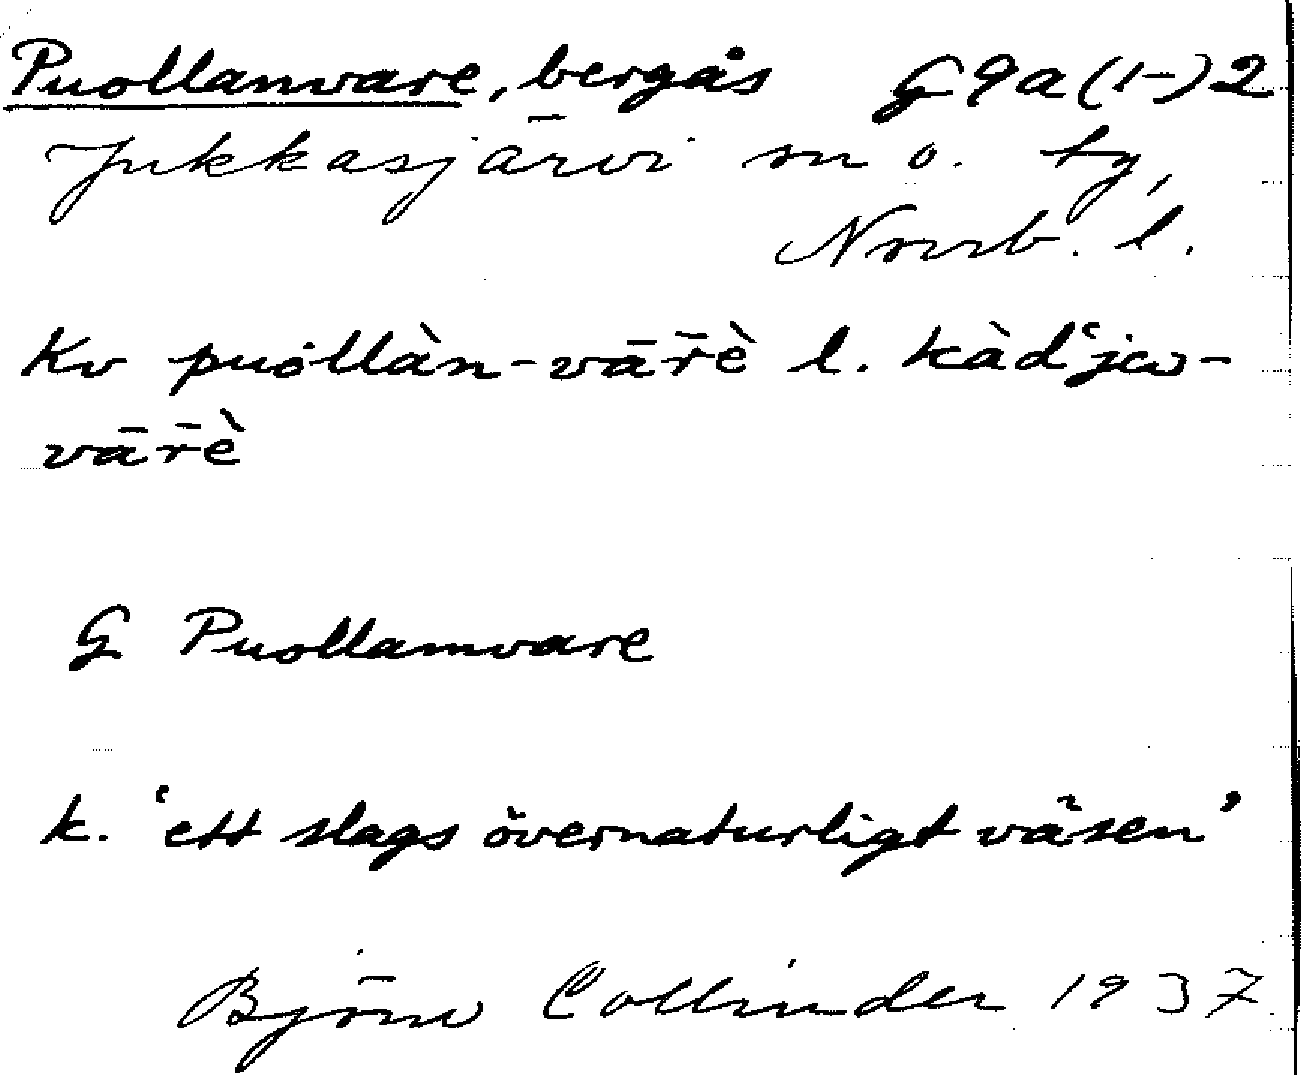 Puollamvare, bergås G9a(1-)2
Jukkasjärvi sn o. tg,
Norrb. l.
Kv puöllàn-vār̄è l. kàd'jω-
vār̄è
G Puollamvare
k. 'ett slags övernaturligt väsen'
Björn Collinder 1937